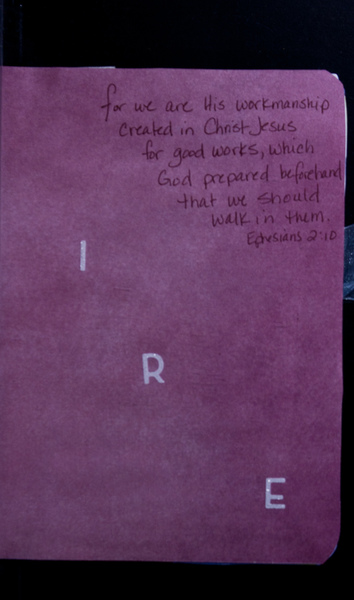 for we are His workmanship
Created in Christ Jesus
for good works, which
God prepared beforehand
that we should
walk in them.
Ephesians 2:10
I
R
E